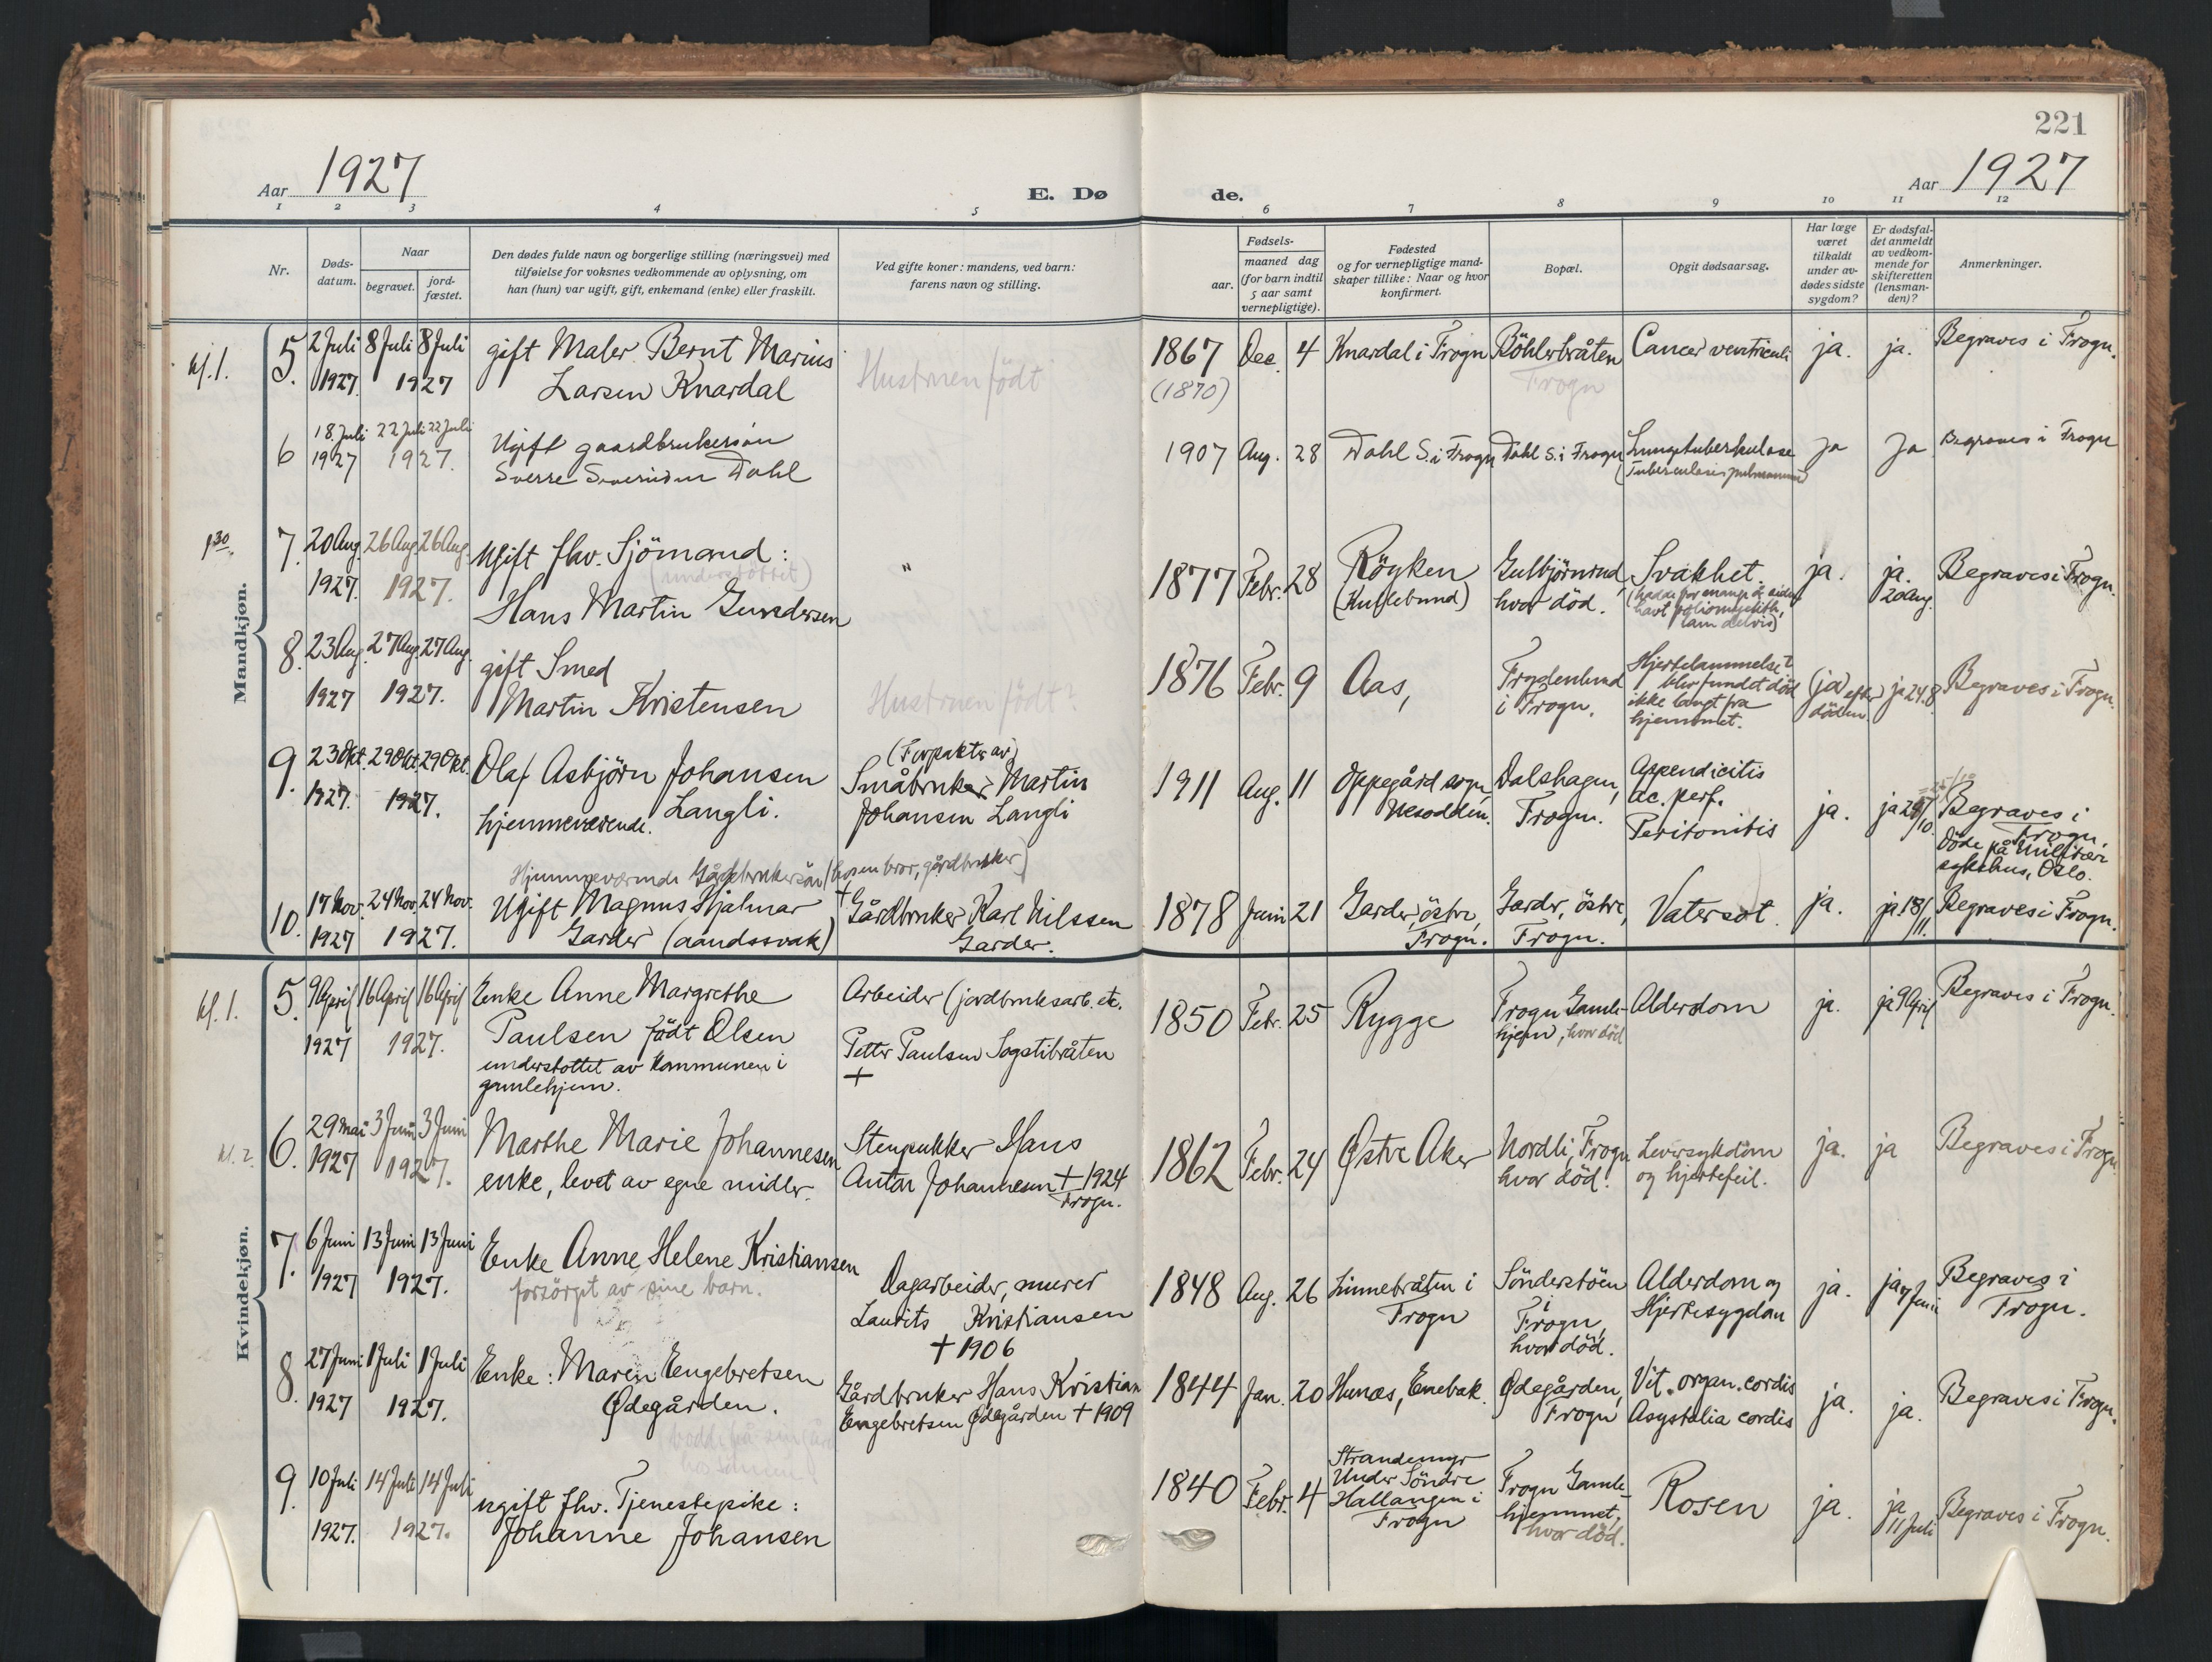 221
Aar 1927
E. Dø
de.
Aar 1927
1 2 3 4 5 6 7 8 9 10 11 12
Nr.
Døds-
datum.
Naar
begravet.
jord-
fæstet.
Den dødes fulde navn og borgerlige stilling (næringsvei) med
tilføielse for voksnes vedkommende av oplysning, om
han (hun) var ugift, gift, enkemand (enke) eller fraskilt.
Ved gifte koner: mandens, ved barn:
farens navn og stilling.
Fødsels-
aar.
maaned dag
(for barn indtil
5 aar samt
vernepligtige).
Fødested
og for vernepligtige mand-
skaper tillike: Naar og hvor
konfirmert.
Bopæl.
Opgit dødsaarsag.
Har læge
været
tilkaldt
under av-
dødes sidste
sygdom?
Er dødsfal-
det anmeldt
av vedkom-
mende for
skifteretten
(lensman-
den)?
Anmerkninger.
Mandkjøn.
kl. 1.
5. 2 Juli 1927. 8 Juli 8 Juli 1927
gift Maler Bernt Marius
Larsen Knardal
Hustruen födt
1867 (1870) Dec. 4
Knardal i Frogn
Böhlerbråten
Frogn
Cancer ventriculi
ja. ja.
Begraves i Frogn.
6 18. Juli 1927 22 Juli 22 Juli 1927.
Ugift gaardbrukersön
Sverre Severinsen Dahl
1907 Aug. 28
Dahl S. i Frogn
Dahl S. i Frogn
Lungetuberkulose
(Tuberculosis pulmonum)
ja Ja
Begraves i Frogn
1 30.
7. 20 Aug. 1927. 26 Aug. 26 Aug. 1927.
Ugift fhv. Sjömand:
(understöttet)
Hans Martin Gundersen
"
1877 Febr. 28
Röyken
Gulbjörnrud,
hvor död.
Svakhet.
(hadde for mange år siden
havt poliomyelith,
lam delvis)
ja. ja. 20 Aug.
Begraves i Frogn.
8. 23 Aug. 1927 27 Aug. 27 Aug. 1927.
gift Smed
Martin Kristensen
Hustruen födt?
1876 Febr. 9
Aas,
Frydenlund
i Frogn.
Hjertelammelse
blev fundet död
ikke langt fra
hjemmet.
(ja) efter
döden
ja 24.8.
Begraves i Frogn.
9. 23 Okt. 1927. 29 Okt. 29 Okt. 1927.
Olaf Asbjörn Johansen
Langli.
hjemmeværende.
(Forpakter av)
Småbruker Martin
Johansen Langli
1911 Aug. 11
Oppegård sogn,
Nesodden.
Dalshagen,
Frogn.
Appendicitis
ac. perf.
Peritonitis
ja. ja
Begraves i
Frogn.
Döde på Militær
sykehus, Oslo.
Hjemmeværende Gårdbrukersön (hos en bror, gårdbruker)
10. 17 Nov. 1927 24 Nov. 24 Nov. 1927.
Ugift Magnus Hjalmar
Garder (aandssvak)
+
Gårdbruker Karl Nilssen
Garder.
1878 Juni 21
Garder, östre,
Frogn.
Garder, östre,
Frogn.
Vatersot
ja. ja 18/11.
Begraves i Frogn.
Kvindekjøn.
kl. 1.
5. 9 April 1927 16 April 16 April 1927.
Enke Anne Margrethe
Paulsen födt Olsen
understottet av kommunen i
gamlehjem.
Arbeider (jordbruksarb. etc.
Petter Paulsen Sogstibråten
+
1850 Febr. 25
Rygge
Frogn Gamle-
hjem, hvor död
Alderdom
ja. ja 9 April
Begraves i Frogn.
kl. 2.
6. 29 mai 1927 3 Juni 3 Juni 1927.
Marthe Marie Johannesen
enke, levet av egne midler.
Stenpukker Hans
Anton Johannesen + 1924
Frogn.
1862 Febr. 24
Østre Aker
Nordli, Frogn
hvor död.
Leversykdom
og hjertefeil.
ja. ja
Begraves i Frogn
7. 6 Juni 1927 13 Juni 13 Juni 1927.
Enke Anne Helene Kristiansen
forsörget av sine barn.
Dagarbeider, murer
Laurits Kristiansen
+ 1906
1848 Aug. 26
Linnebråten i
Frogn
Sönderstöen
i
Frogn,
hvor död.
Alderdom og
Hjertesygdom
ja. ja 7 Juni
Begraves i
Frogn.
8. 27 Juni 1927 1 Juli 1 Juli 1927.
Enke: Maren Engebretsen
Ødegården.
Gårdbruker Hans Kristian
Engebretsen Ødegården + 1909
1844 Jan. 20
Enebak.
Ødegården,
Frogn
Vit. organ. cordis
Asystolia cordis
ja. ja.
Begraves i Frogn.
9. 10 Juli 1927. 14 Juli 14 Juli 1927.
ugift fhv. Tjenestepike:
Johanne Johansen
1840 Febr. 4
Strandemyr
Under Söndre
Hallangen i
Frogn
Frogn Gamle-
hjemmet,
hvor död.
Rosen
ja. ja 11 Juli
Begraves i Frogn.